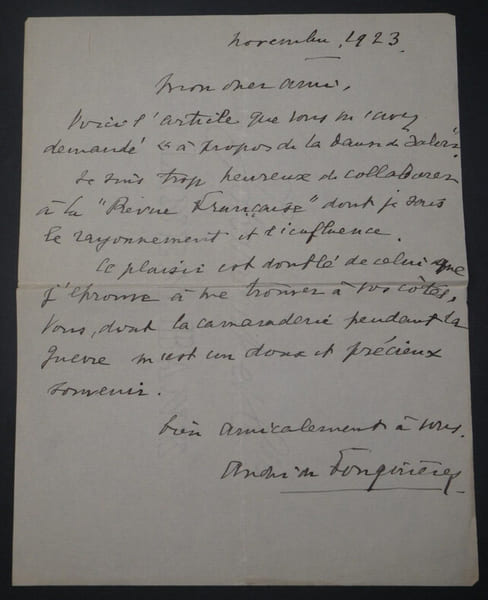 novembre, 1923.
mon cher ami,
Voici l'article que vous m'avez
demandé "à propos de la Danse de Salon".
Je suis trop heureux de collaborer
à la "Revue Française" dont je sais
le rayonnement et l'influence.
Ce plaisir est doublé de celui que
j'éprouve à me trouver à vos côtés,
vous, dont la camaraderie pendant la
guerre m'est un doux et précieux
souvenir.
bien amicalement à vous.
André de Fouquières